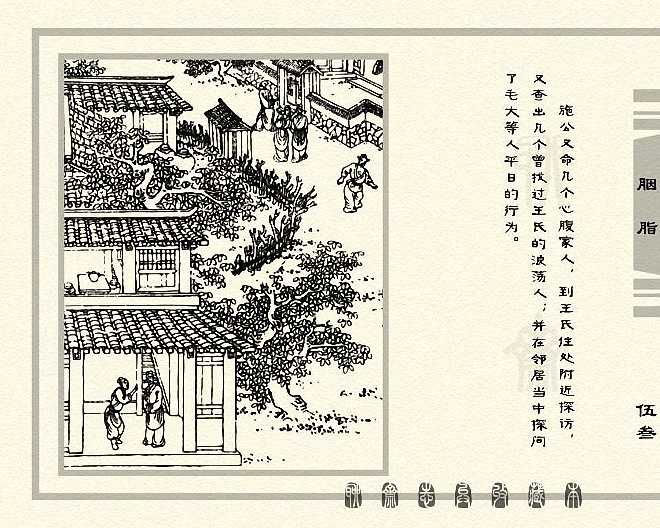 胭脂
伍叁
施公又命几个心腹家人，到王氏住处附近探访，
又查出几个曾找过王氏的浪荡人；并在邻居当中探问
了毛大等人平日的行为。